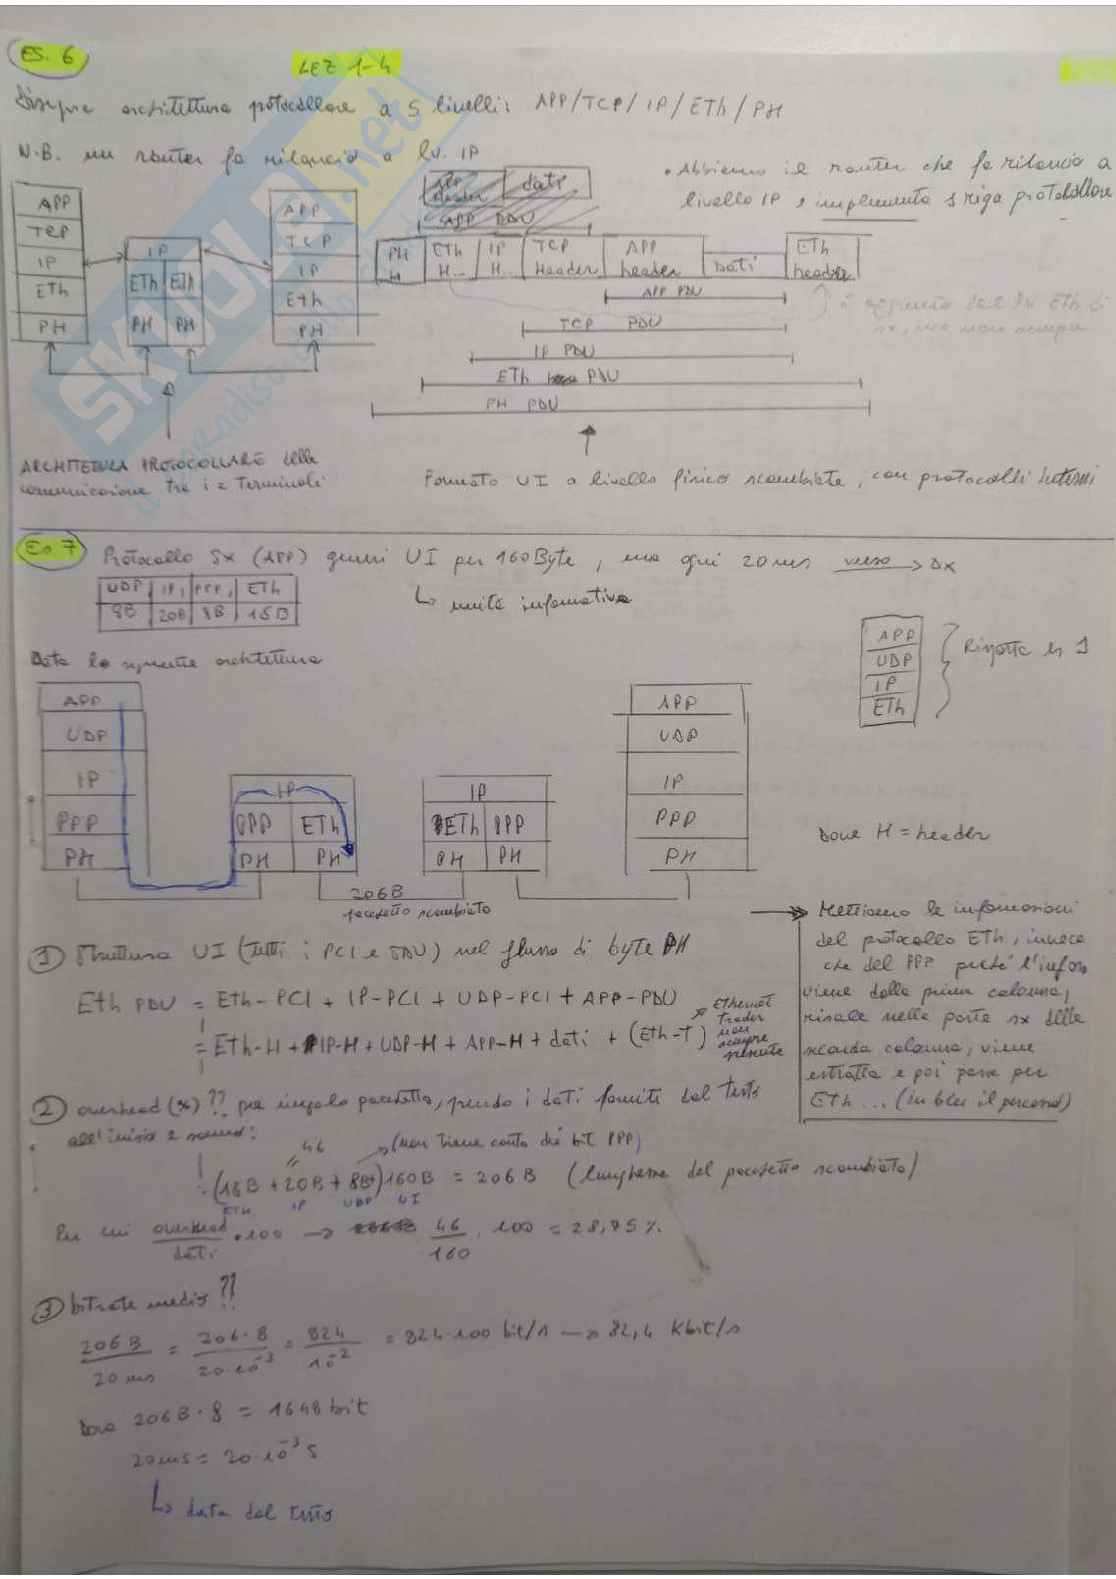 ES. 6
LEZ 1-4
architettura protocollare a 5 livelli: APP/TCP/IP/ETh/PH
N.B. un router fa rilancio a lv. IP
• Abbiamo il router che fa rilancio a
livello IP e implementa 1 riga protocollare
APP
TCP
IP
ETh
PH
IP
ETh ETh
PH PH
APP
TCP
IP
Eth
PH
header dati
APP PDU
PH H
ETh H...
IP H...
TCP Header
APP header
Dati
ETh header
APP PDU
TCP PDU
IP PDU
ETh PDU
PH PDU
ARCHITETTURA PROTOCOLLARE della
comunicazione tra i 2 Terminali
Formato UI a livello fisico scambiate, con protocolli
Es 7
Protocollo Sx (APP) UI per 160Byte, una ogni 20 ms verso → Dx
↳ unità informativa
UDP IP PPP ETh
8B 20B 8B 18B
Data la seguente architettura
APP
UDP
IP
ETh
Rispetto es 1
APP
UDP
IP
PPP
PH
IP
PPP ETh
PH PH
IP
ETh PPP
PH PH
APP
UDP
IP
PPP
PH
Dove H = header
206B
pacchetto scambiato
① Struttura UI (tutti i PCI e SDU) nel flusso di byte PH
ETh PDU = ETh-PCI + IP-PCI + UDP-PCI + APP-PDU
= ETh-H + IP-H + UDP-H + APP-H + dati + (Eth-T)
Ethernet
non
sempre
presente
→ Mettiamo le informazioni
del protocollo ETh, invece
che del PPP perché l'inform
viene dalla prima colonna,
risale nella parte sx della
seconda colonna, viene
estratta e poi passa per
ETh ... (in blu il percorso)
② overhead (%) ?? per singolo pacchetto, prendo i dati forniti dal testo
all'inizio e sommo:
46
→ (non tiene conto dei bit PPP)
(18B + 20B + 8B+)160B = 206B (lunghezza del pacchetto scambiato)
ETH IP UDP UI
Per cui overhead/dati • 100 → 46/160 . 100 = 28,75 %.
③ bitrate medio ??
206B/20 ms = 206·8/20·10⁻³ = 824/10⁻² = 824·100 bit/s → 82,4 Kbit/s
Dove 206B·8 = 1648 bit
20ms = 20·10⁻³ s
↳ data dal testo